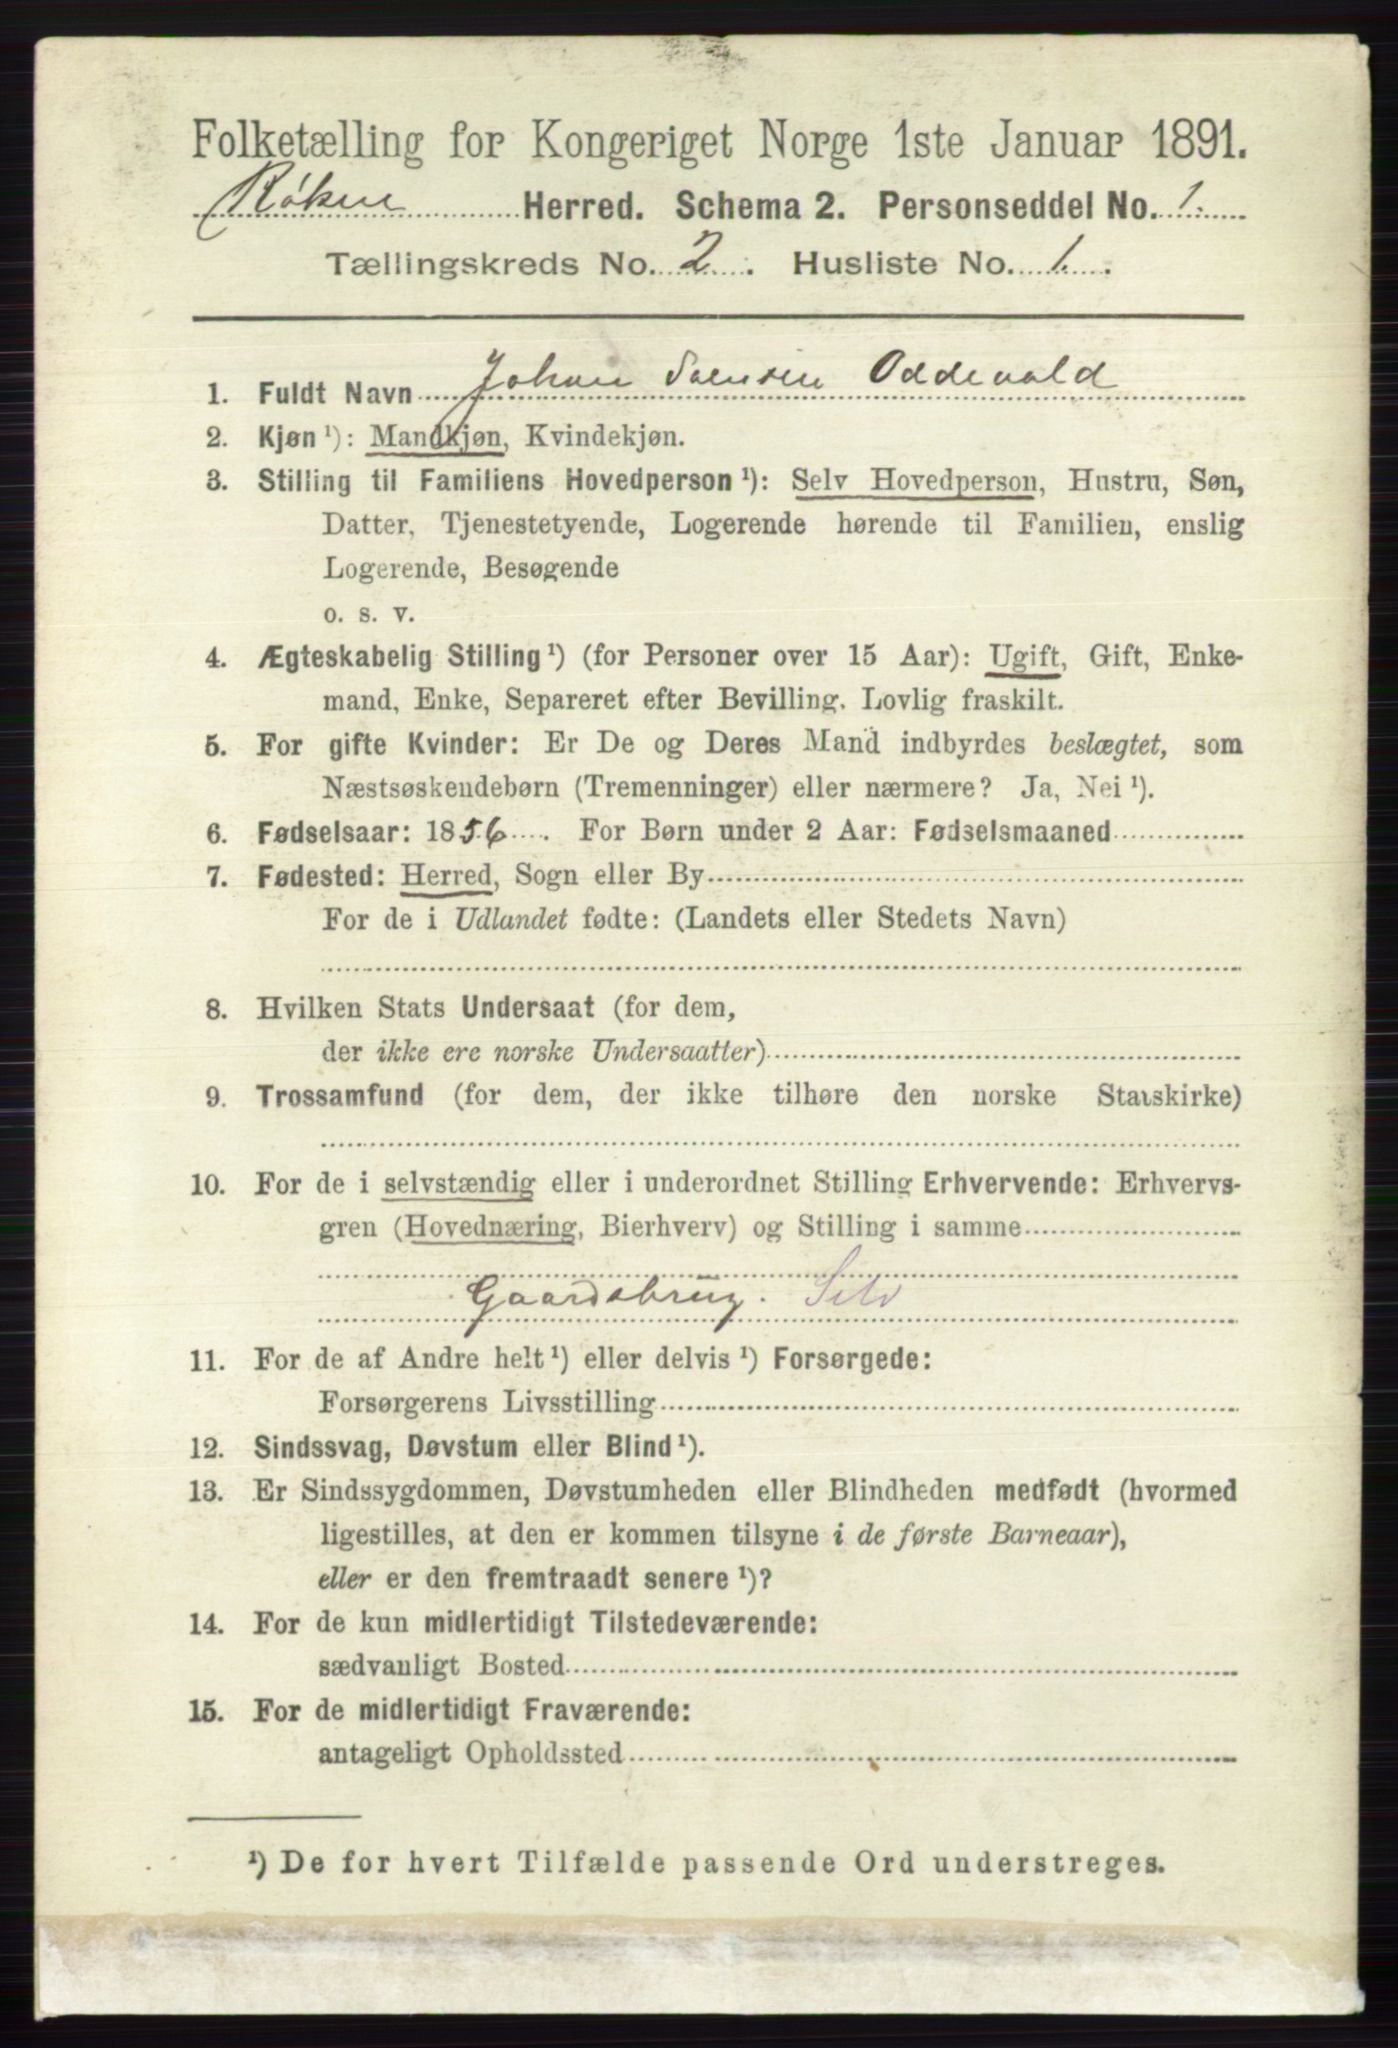 Folketælling for Kongeriget Norge 1ste Januar 1891.
Røken Herred. Schema 2. Personseddel No. 1.
Tællingskreds No. 2. Husliste No. 1.
1. Fuldt Navn Johan Svensen Oddevald
2. Kjøn ¹): Mandkjøn, Kvindekjøn.
3. Stilling til Familiens Hovedperson ¹): Selv Hovedperson, Hustru, Søn,
Datter, Tjenestetyende, Logerende hørende til Familien, enslig
Logerende, Besøgende
o. s. v.
4. Ægteskabelig Stilling ¹) (for Personer over 15 Aar): Ugift, Gift, Enke-
mand, Enke, Separeret efter Bevilling. Lovlig fraskilt.
5. For gifte Kvinder: Er De og Deres Mand indbyrdes beslægtet, som
Næstsøskendebørn (Tremenninger) eller nærmere? Ja, Nei ¹).
6. Fødselsaar: 1856. For Børn under 2 Aar: Fødselsmaaned
7. Fødested: Herred, Sogn eller By
For de i Udlandet fødte: (Landets eller Stedets Navn)
8. Hvilken Stats Undersaat (for dem,
der ikke ere norske Undersaatter)
9. Trossamfund (for dem, der ikke tilhøre den norske Statskirke)
10. For de i selvstændig eller i underordnet Stilling Erhvervende: Erhvervs-
gren (Hovednæring, Bierhverv) og Stilling i samme
Gaardsbrug. Selv
11. For de af Andre helt ¹) eller delvis ¹) Forsørgede:
Forsørgerens Livsstilling
12. Sindssvag, Døvstum eller Blind ¹).
13. Er Sindssygdommen, Døvstumheden eller Blindheden medfødt (hvormed
ligestilles, at den er kommen tilsyne i de første Barneaar),
eller er den fremtraadt senere ¹)?
14. For de kun midlertidigt Tilstedeværende:
sædvanligt Bosted
15. For de midlertidigt Fraværende:
antageligt Opholdssted
¹) De for hvert Tilfælde passende Ord understreges.